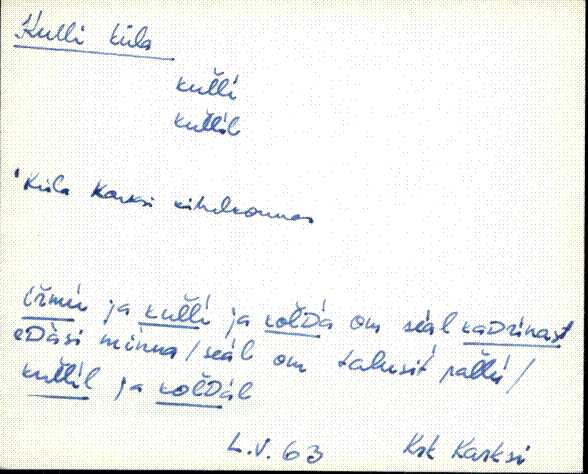 Kulli küla
kul̆li
kul̆lil
'Küla Karksi kihelkonnas
ja kul̆li ja kol̆Da om seäl kadrinast
eDäsi minna / seäl om talusit pal̆lu /
kul̆lil ja kol̆Dal
L.V. 63 Krk Karksi